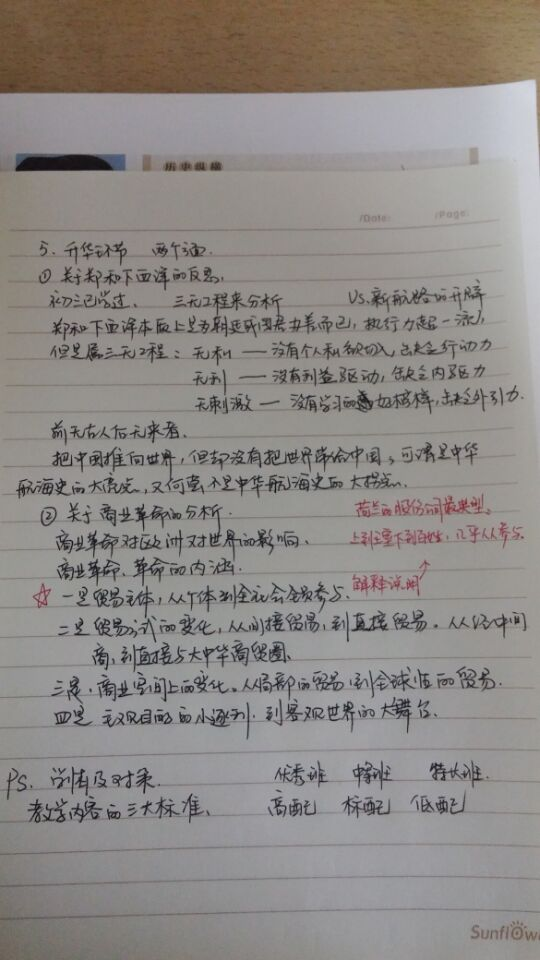 历史纵横
/Date: /Page:
5. 升华环节 两个面
① 关于郑和下西洋的反思.
初三已学过. 三无工程来分析 VS.新航路的开辟
郑和下西洋本质上是为朝廷或国君办差而已，执行力超一流,
但是属三无工程：无私 — 没有个人私欲切入,缺乏行动力
无利 — 没有利益驱动，缺乏内驱力
无刺激 — 没有学习的好榜样,缺乏外引力.
前无古人后无来者.
把中国推向世界，但却没有把世界带给中国，可谓是中华
航海史的大亮点，又何尝不是中华航海史的大拐点.
② 关于商业革命的分析. 荷兰的股份公司最典型.
商业革命对欧洲对世界的影响. 上到王室下到百姓，几乎人人参与.
商业革命、革命的内涵. 解释说明
☆ 一是贸易主体，从个体到全社会全员参与.
二是贸易方式的变化，从间接贸易,到直接贸易. 从经中间
商,到直接与大中华商贸圈.
三是，商业空间上的变化。从局部的贸易,到全球性的贸易.
四是 主观目的的小逐利. 到客观世界的大舞台.
PS. 学情及对象 优秀班 中等班 特长班.
教学内容的三大标准. 高配 标配 低配